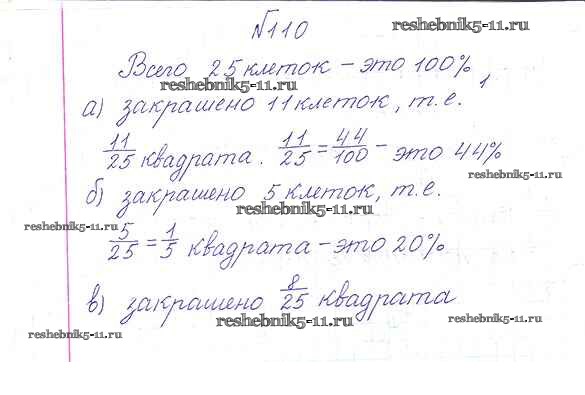 №110
reshebnik5-11.ru
Всего 25 клеток – это 100%,
reshebnik5-11.ru
а) закрашено 11 клеток, т.е.
11/25 квадрата. 11/25 = 44/100 – это 44%
reshebnik5-11.ru
б) закрашено 5 клеток, т.е.
reshebnik5-11.ru
reshebnik5-11.ru
5/25 = 1/5 квадрата – это 20%
в) закрашено 8/25 квадрата
reshebnik5-11.ru
reshebnik5-11.ru
reshebnik5-11.ru